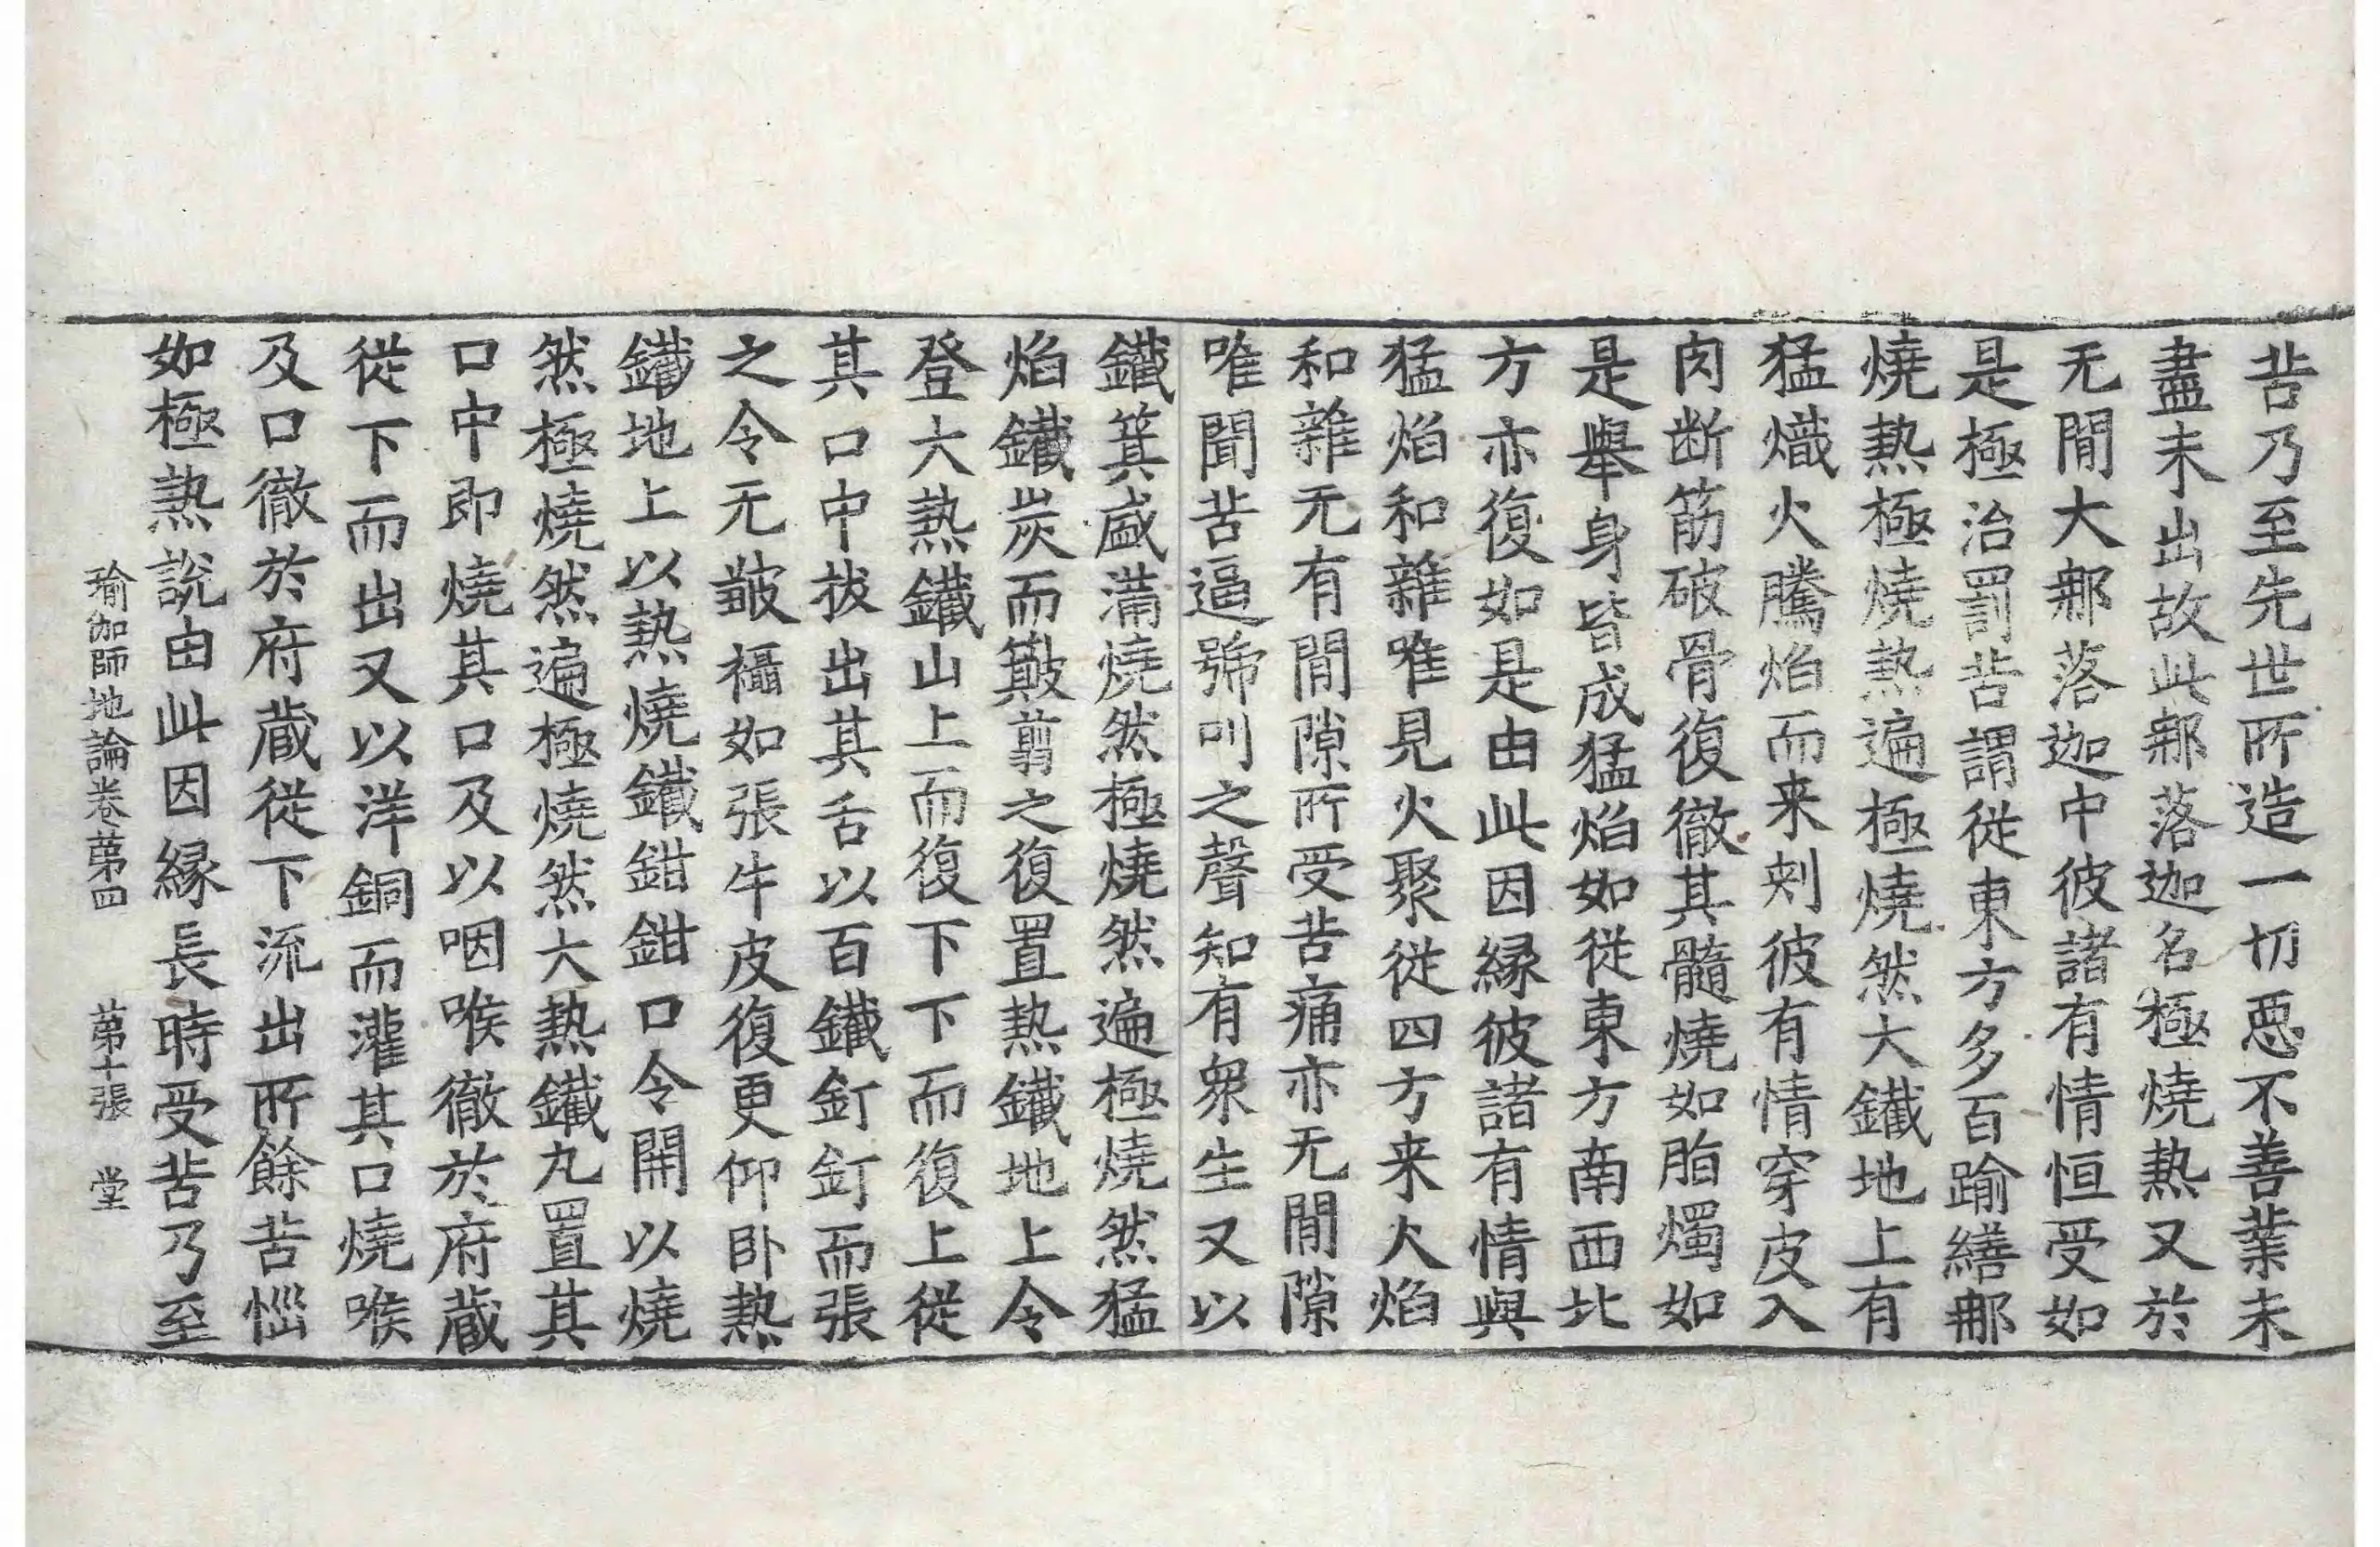 苦乃至先世所造一切惡不善業未
盡未出故此那落迦名極燒熱又於
无間大那落迦中彼諸有情恒受如
是極治罰苦謂從東方多百踰繕那
燒熱極燒熱遍極燒然大鐵地上有
猛熾火騰焰而来刾彼有情穿皮入
肉斷筋破骨復徹其髓燒如脂燭如
是舉身皆成猛焰如從東方南西北
方亦復如是由此因縁彼諸有情與
猛焰和雜唯見火聚從四方来火焰
和雜无有間隙所受苦痛亦无間隙
唯聞苦逼號叫之聲知有衆生又以
鐵箕盛滿燒然極燒然遍極燒然猛
焰鐵炭而簸剪之復置熱鐵地上令
登大熱鐵山上而復下下而復上從
其口中拔出其舌以百鐵釘釘而張
之令无皺襵如張牛皮復更仰卧熱
鐵地上以熱燒鐵鉗鉗口令開以燒
然極燒然遍極燒然大熱鐵丸置其
口中即燒其口及以咽喉徹於府藏
從下而出又以洋銅而灌其口燒喉
及口徹於府藏從下流出所餘苦惱
如極熱說由此因縁長時受苦乃至
瑜伽師地論卷第四 第十張 堂